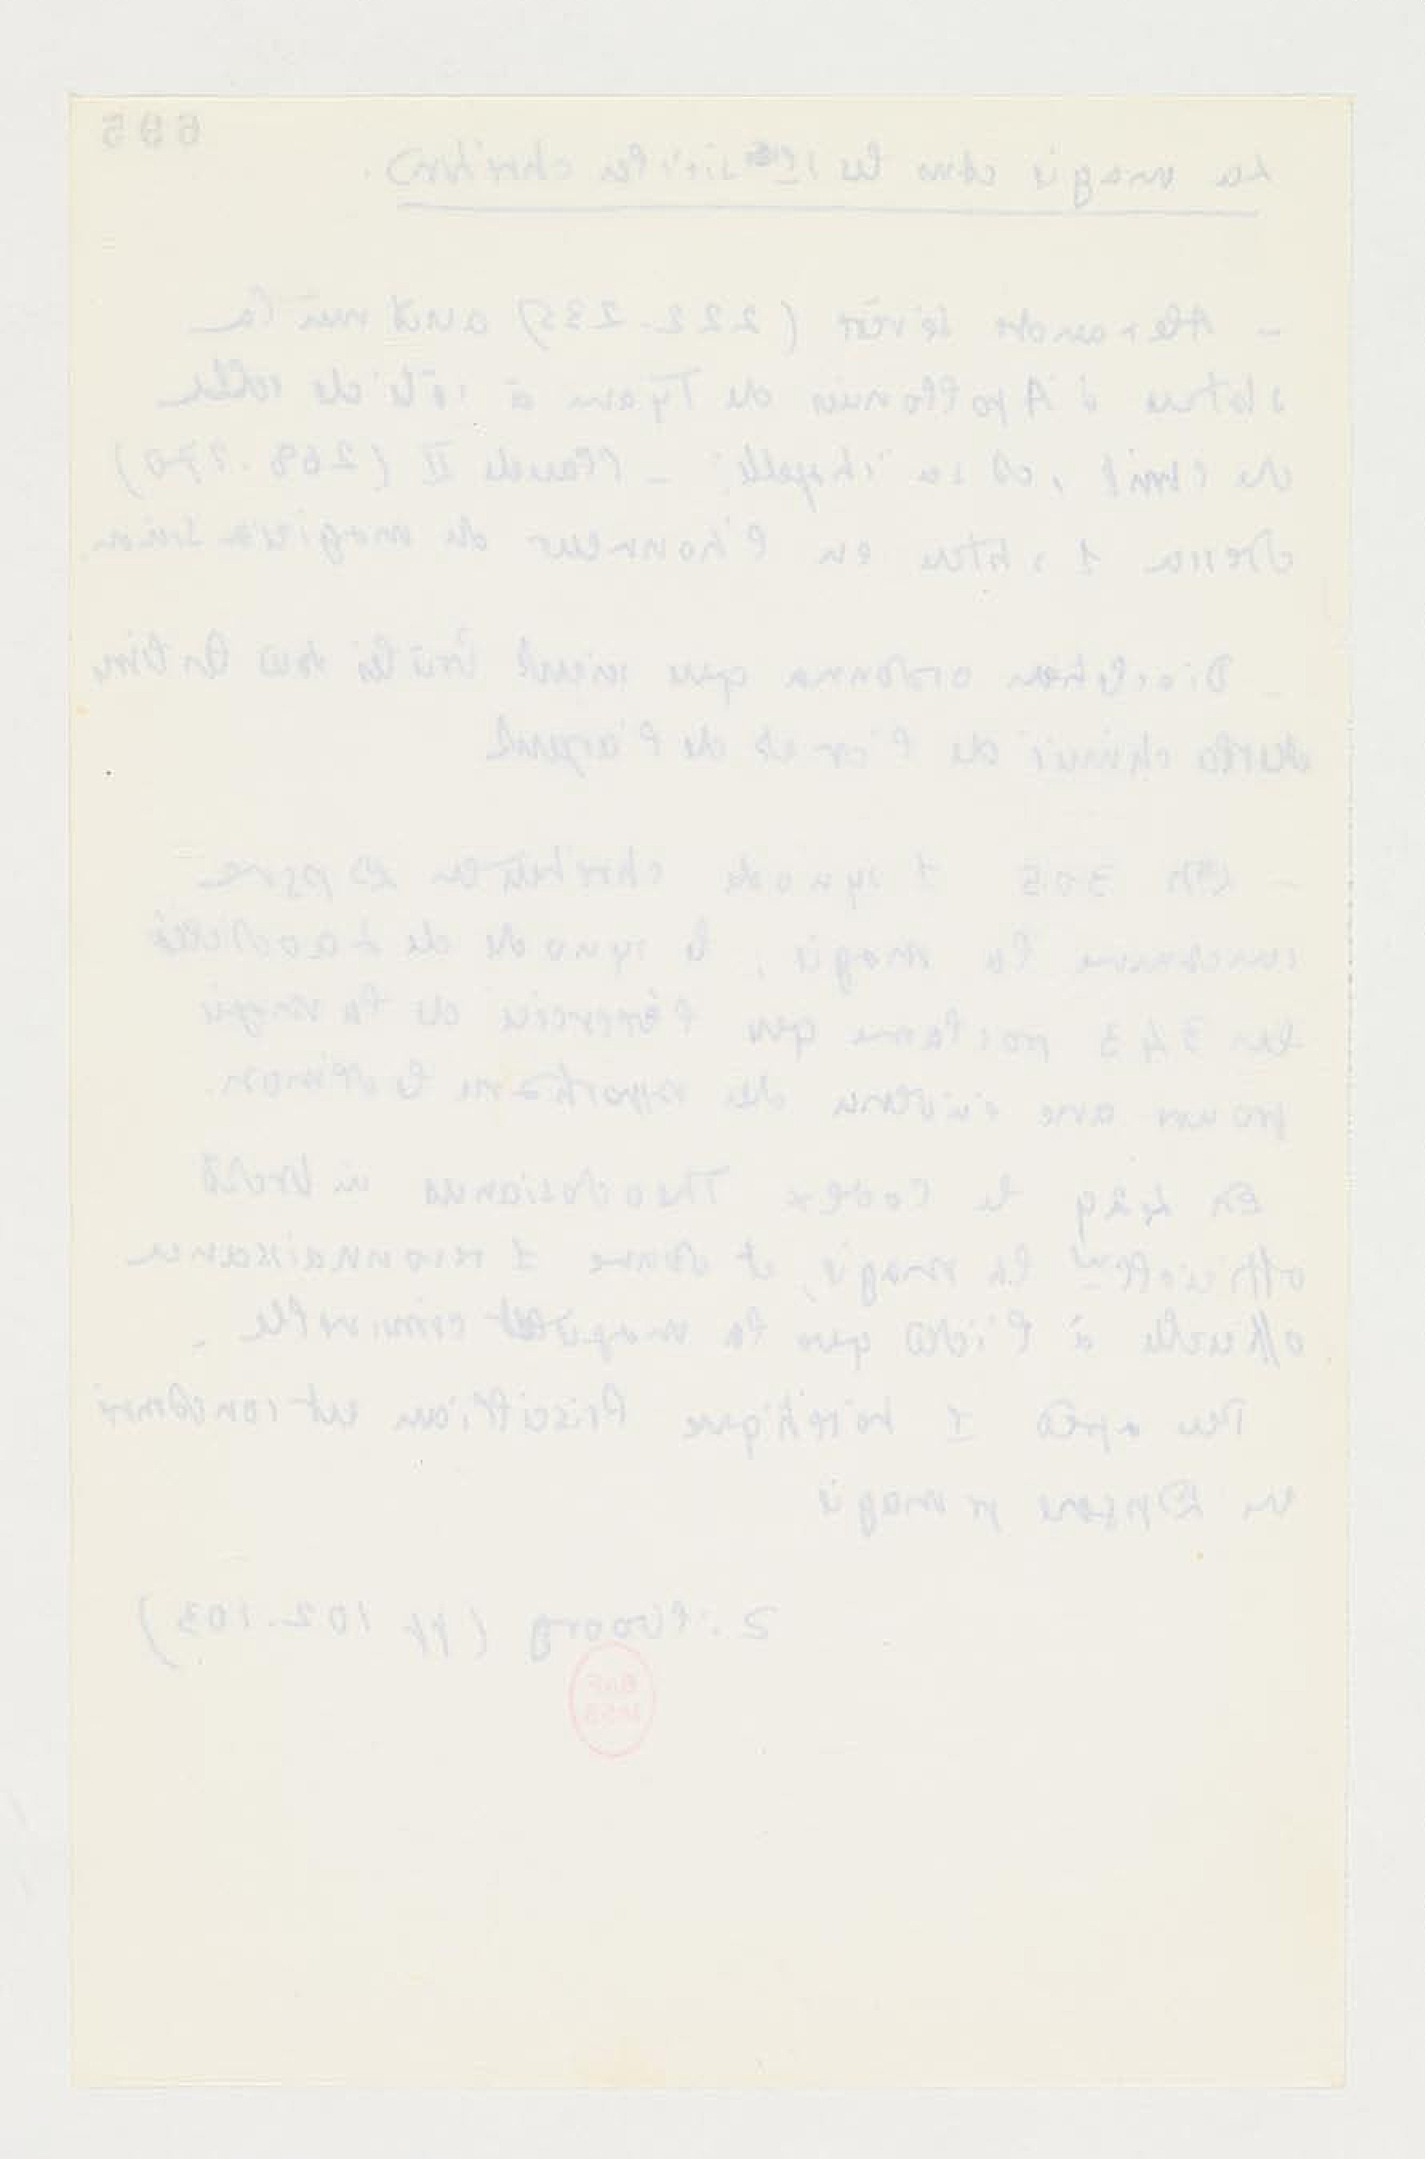 695
La magie dans les 1ers siècles chrétiens.
- Alexandre Sévère (222-235) avait mis la
statue d'Apollonius de Tyane à côté de celle
du Christ, ds sa chapelle. - Claude II (268-270)
dressa 1 statue en l'honneur du magicien
- Dioclétien ordonna que soient brûlés tous les livres
de l'or et de l'argent
- En 305 1 synode
condamne la magie, le synode de Laodicée
en 343 proclame que l'exercice de la magie
prouve avec le démon.
En 429 le Codex Theodosianus interdit
la magie, et donne 1 reconnaissance
officielle à l'idée que la magie est criminelle.
Peu après 1 hérétique Priscillian est condamné
en Espagne pr magie
(pp 102-103)
BnF
MSS